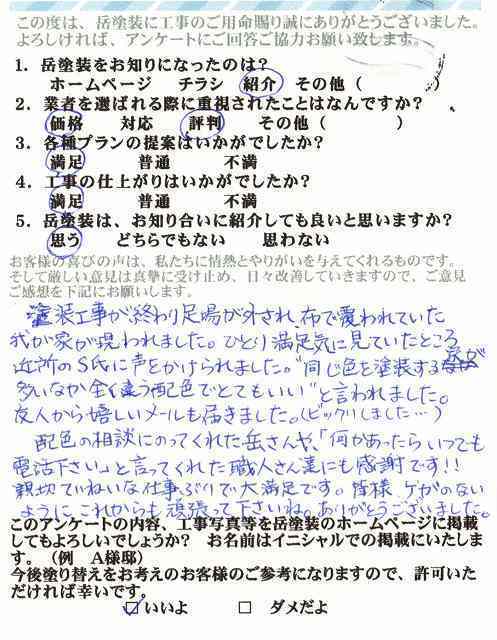 この度は、岳塗装に工事のご用命賜り誠にありがとうございました。
よろしければ、アンケートにご回答ご協力お願い致します。
1．岳塗装をお知りになったのは？
ホームページ　チラシ　紹介　その他（　　　　）
2．業者を選ばれる際に重視されたことはなんですか？
価格　　対応　　評判　　その他（　　　　）
3．各種プランの提案はいかがでしたか？
満足　　普通　　不満
4．工事の仕上がりはいかがでしたか？
満足　　普通　　不満
5．岳塗装は、お知り合いに紹介しても良いと思いますか？
思う　　どちらでもない　　思わない
お客様の喜びの声は、私たちに情熱とやりがいを与えてくれるものです。
そして厳しい意見は真摯に受け止め、日々改善していきますので、ご意見
ご感想を下記にお願いします。
塗装工事が終わり足場が外され、布で覆われていた
我が家が現われました。ひとり満足気に見ていたところ
近所のS氏に声をかけられました。“同じ色を塗装する家が
多いなか全く違う配色でとてもいい”と言われました。
友人から嬉しいメールも届きました。（ビックリしました…）
配色の相談にのってくれた岳さんや、「何かあったらいつでも
電話下さい」と言ってくれた職人さん達にも感謝です!!
親切ていねいな仕事ぶりで大満足です。皆様、ケガのない
ようにこれからも頑張って下さいね。ありがとうございました。
このアンケートの内容、工事写真等を岳塗装のホームページに掲載
してもよろしいでしょうか？　お名前はイニシャルでの掲載にいたしま
す。（例　A様邸）
今後塗り替えをお考えのお客様のご参考になりますので、許可いた
だければ幸いです。
☑いいよ　　□　ダメだよ